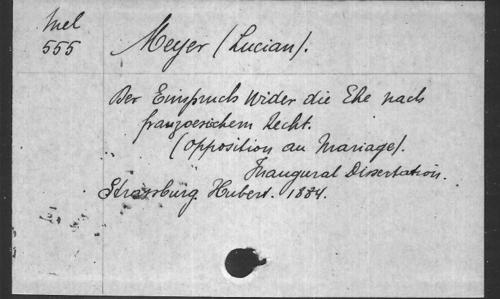 Mel
555
Meyer (Lucian).
Der Einspruch wider die Ehe nach
franzoesischem Recht.
(Opposition au Mariage).
Inaugural Dissertation.
Strassburg Hubert. 1884.